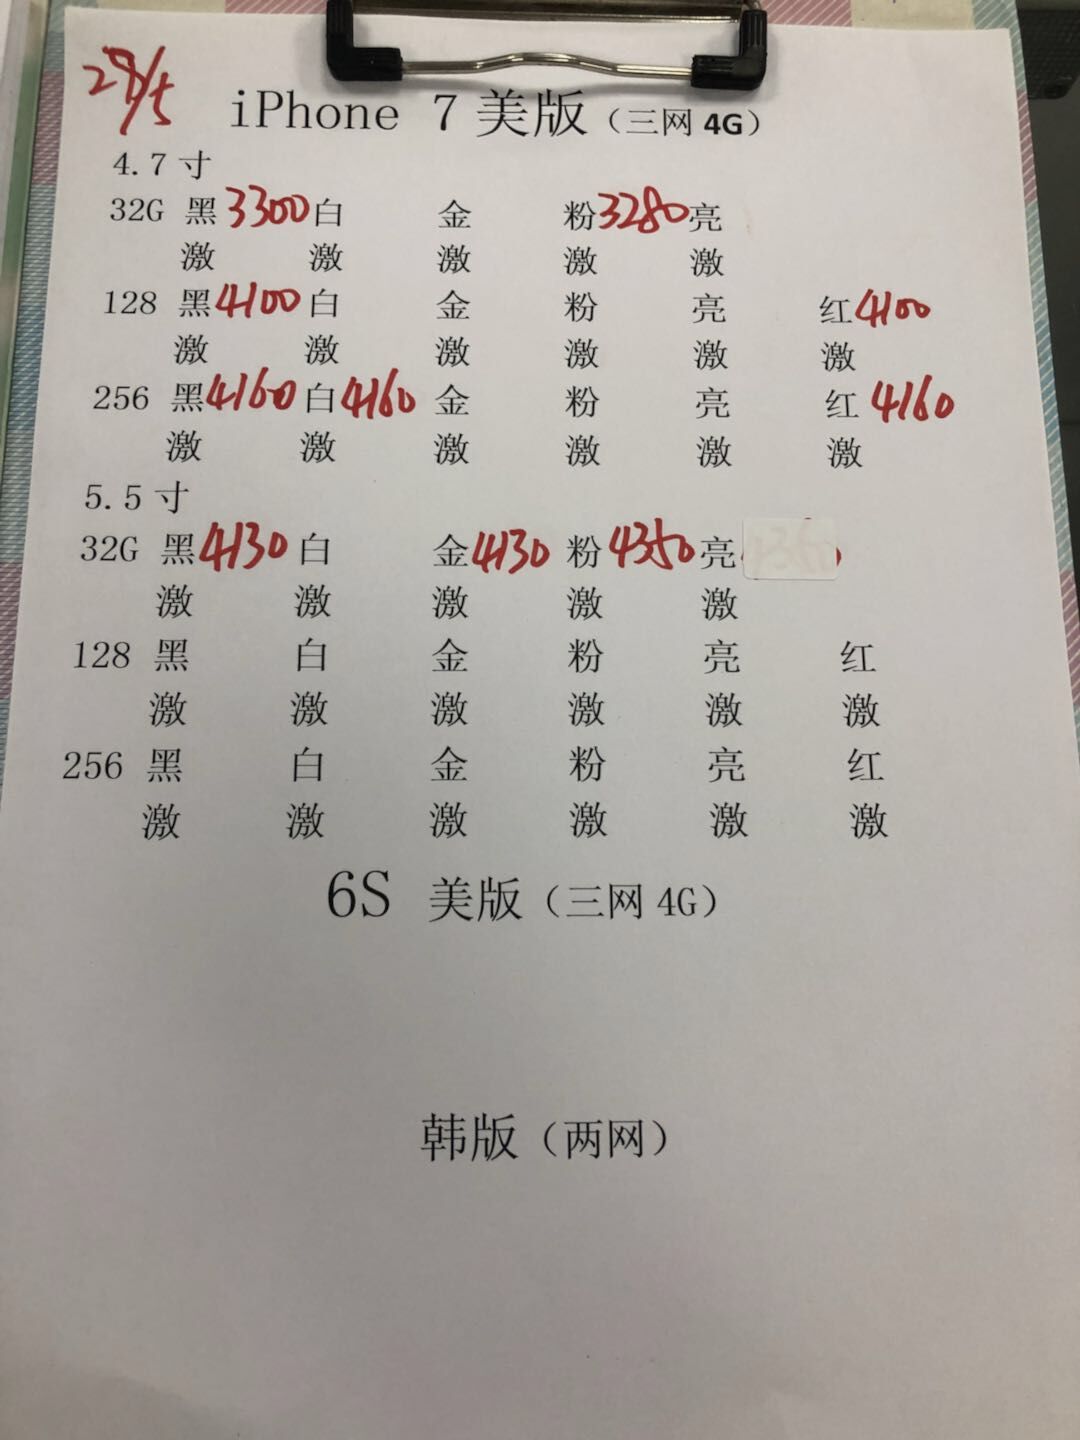 28/5 iPhone 7 美版（三网 4G）
4.7 寸
32G 黑 3300 白 金 粉 3280 亮
激 激 激 激 激
128 黑 4100 白 金 粉 亮 红 4100
激 激 激 激 激 激
256 黑 4160 白 4160 金 粉 亮 红 4160
激 激 激 激 激 激
5.5 寸
32G 黑 4130 白 金 4130 粉 4350 亮
激 激 激 激 激
128 黑 白 金 粉 亮 红
激 激 激 激 激 激
256 黑 白 金 粉 亮 红
激 激 激 激 激 激
6S 美版（三网 4G）
韩版（两网）